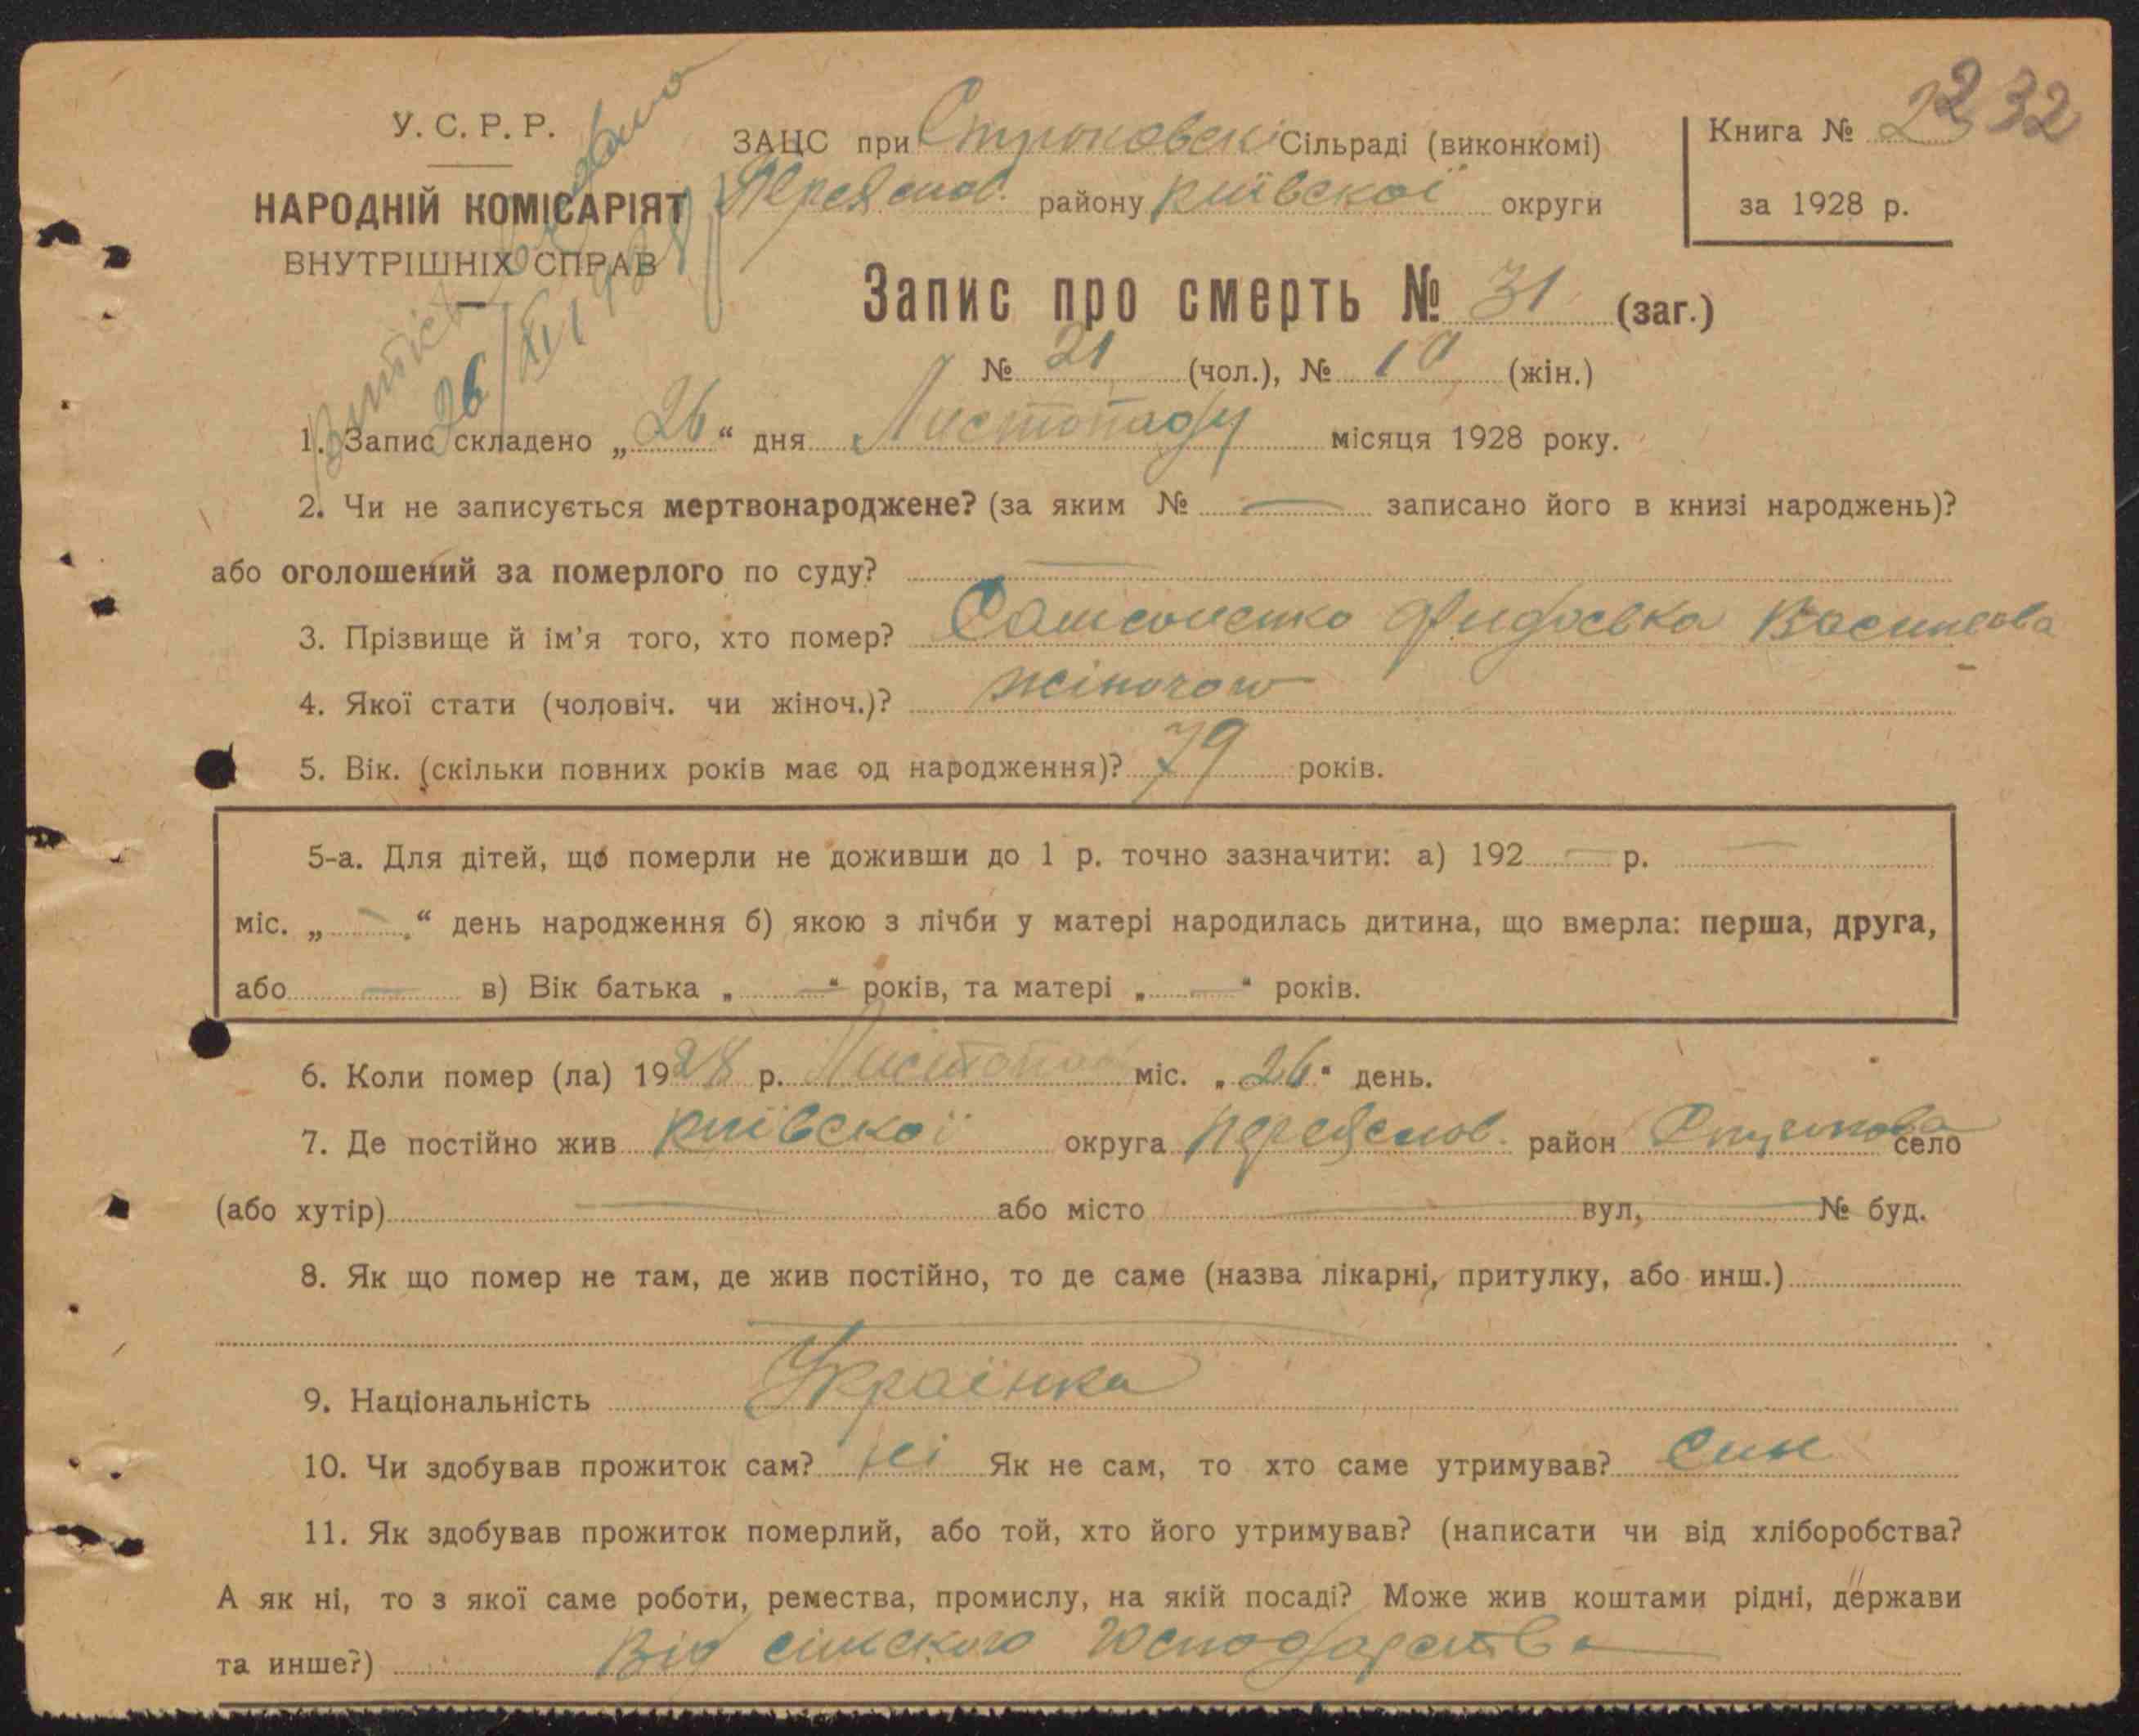 232
У. С. Р. Р.
НАРОДНІЙ КОМІСАРІЯТ
ВНУТРІШНІХ СПРАВ
26/XI 1928
ЗАЦС при Строковскі Сільраді (виконкомі)
Переяслов. району Київскої округи
Книга № 2
за 1928 р.
Запис про смерть № 31 (заг.)
№ 21 (чол.), № 10 (жін.)
1. Запис складено „26“ дня Листопаду місяця 1928 року.
2. Чи не записується мертвонароджене? (за яким № — записано його в книзі народжень)?
або оголошений за померлого по суду? —
3. Прізвище й ім'я того, хто помер? Самсоненко Фидоська Василева
4. Якої стати (чоловіч. чи жіноч.)? жіночою
5. Вік. (скільки повних років має од народження)? 79 років.
5-а. Для дітей, що померли не доживши до 1 р. точно зазначити: а) 192 — р. —
міс. „ — “ день народження б) якою з лічби у матері народилась дитина, що вмерла: перша, друга,
або — в) Вік батька „ — “ років, та матері „ — “ років.
6. Коли помер (ла) 1928 р. Листопад міс. „26“ день.
7. Де постійно жив Київскої округа Переяслов. район Строкова село
(або хутір) — або місто — вул, — № буд.
8. Як що помер не там, де жив постійно, то де саме (назва лікарні, притулку, або инш.)
—
9. Національність Українка
10. Чи здобував прожиток сам? ні Як не сам, то хто саме утримував? Син
11. Як здобував прожиток померлий, або той, хто його утримував? (написати чи від хліборобства?
А як ні, то з якої саме роботи, ремества, промислу, на якій посаді? Може жив коштами рідні, держави
та инше?) Від сільского господарства